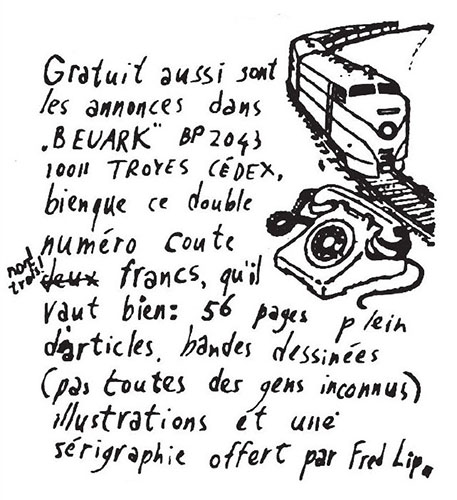 Gratuit aussi sont
les annonces dans
„BEUARK" BP 2043
10011 TROYES CÉDEX,
bienque ce double
numéro coute
non! trois! deux francs, qu'il
vaut bien: 56 pages plein
d'articles, bandes dessinées
(pas toutes des gens inconnus)
illustrations et une
sérigraphie offert par Fred Lip.